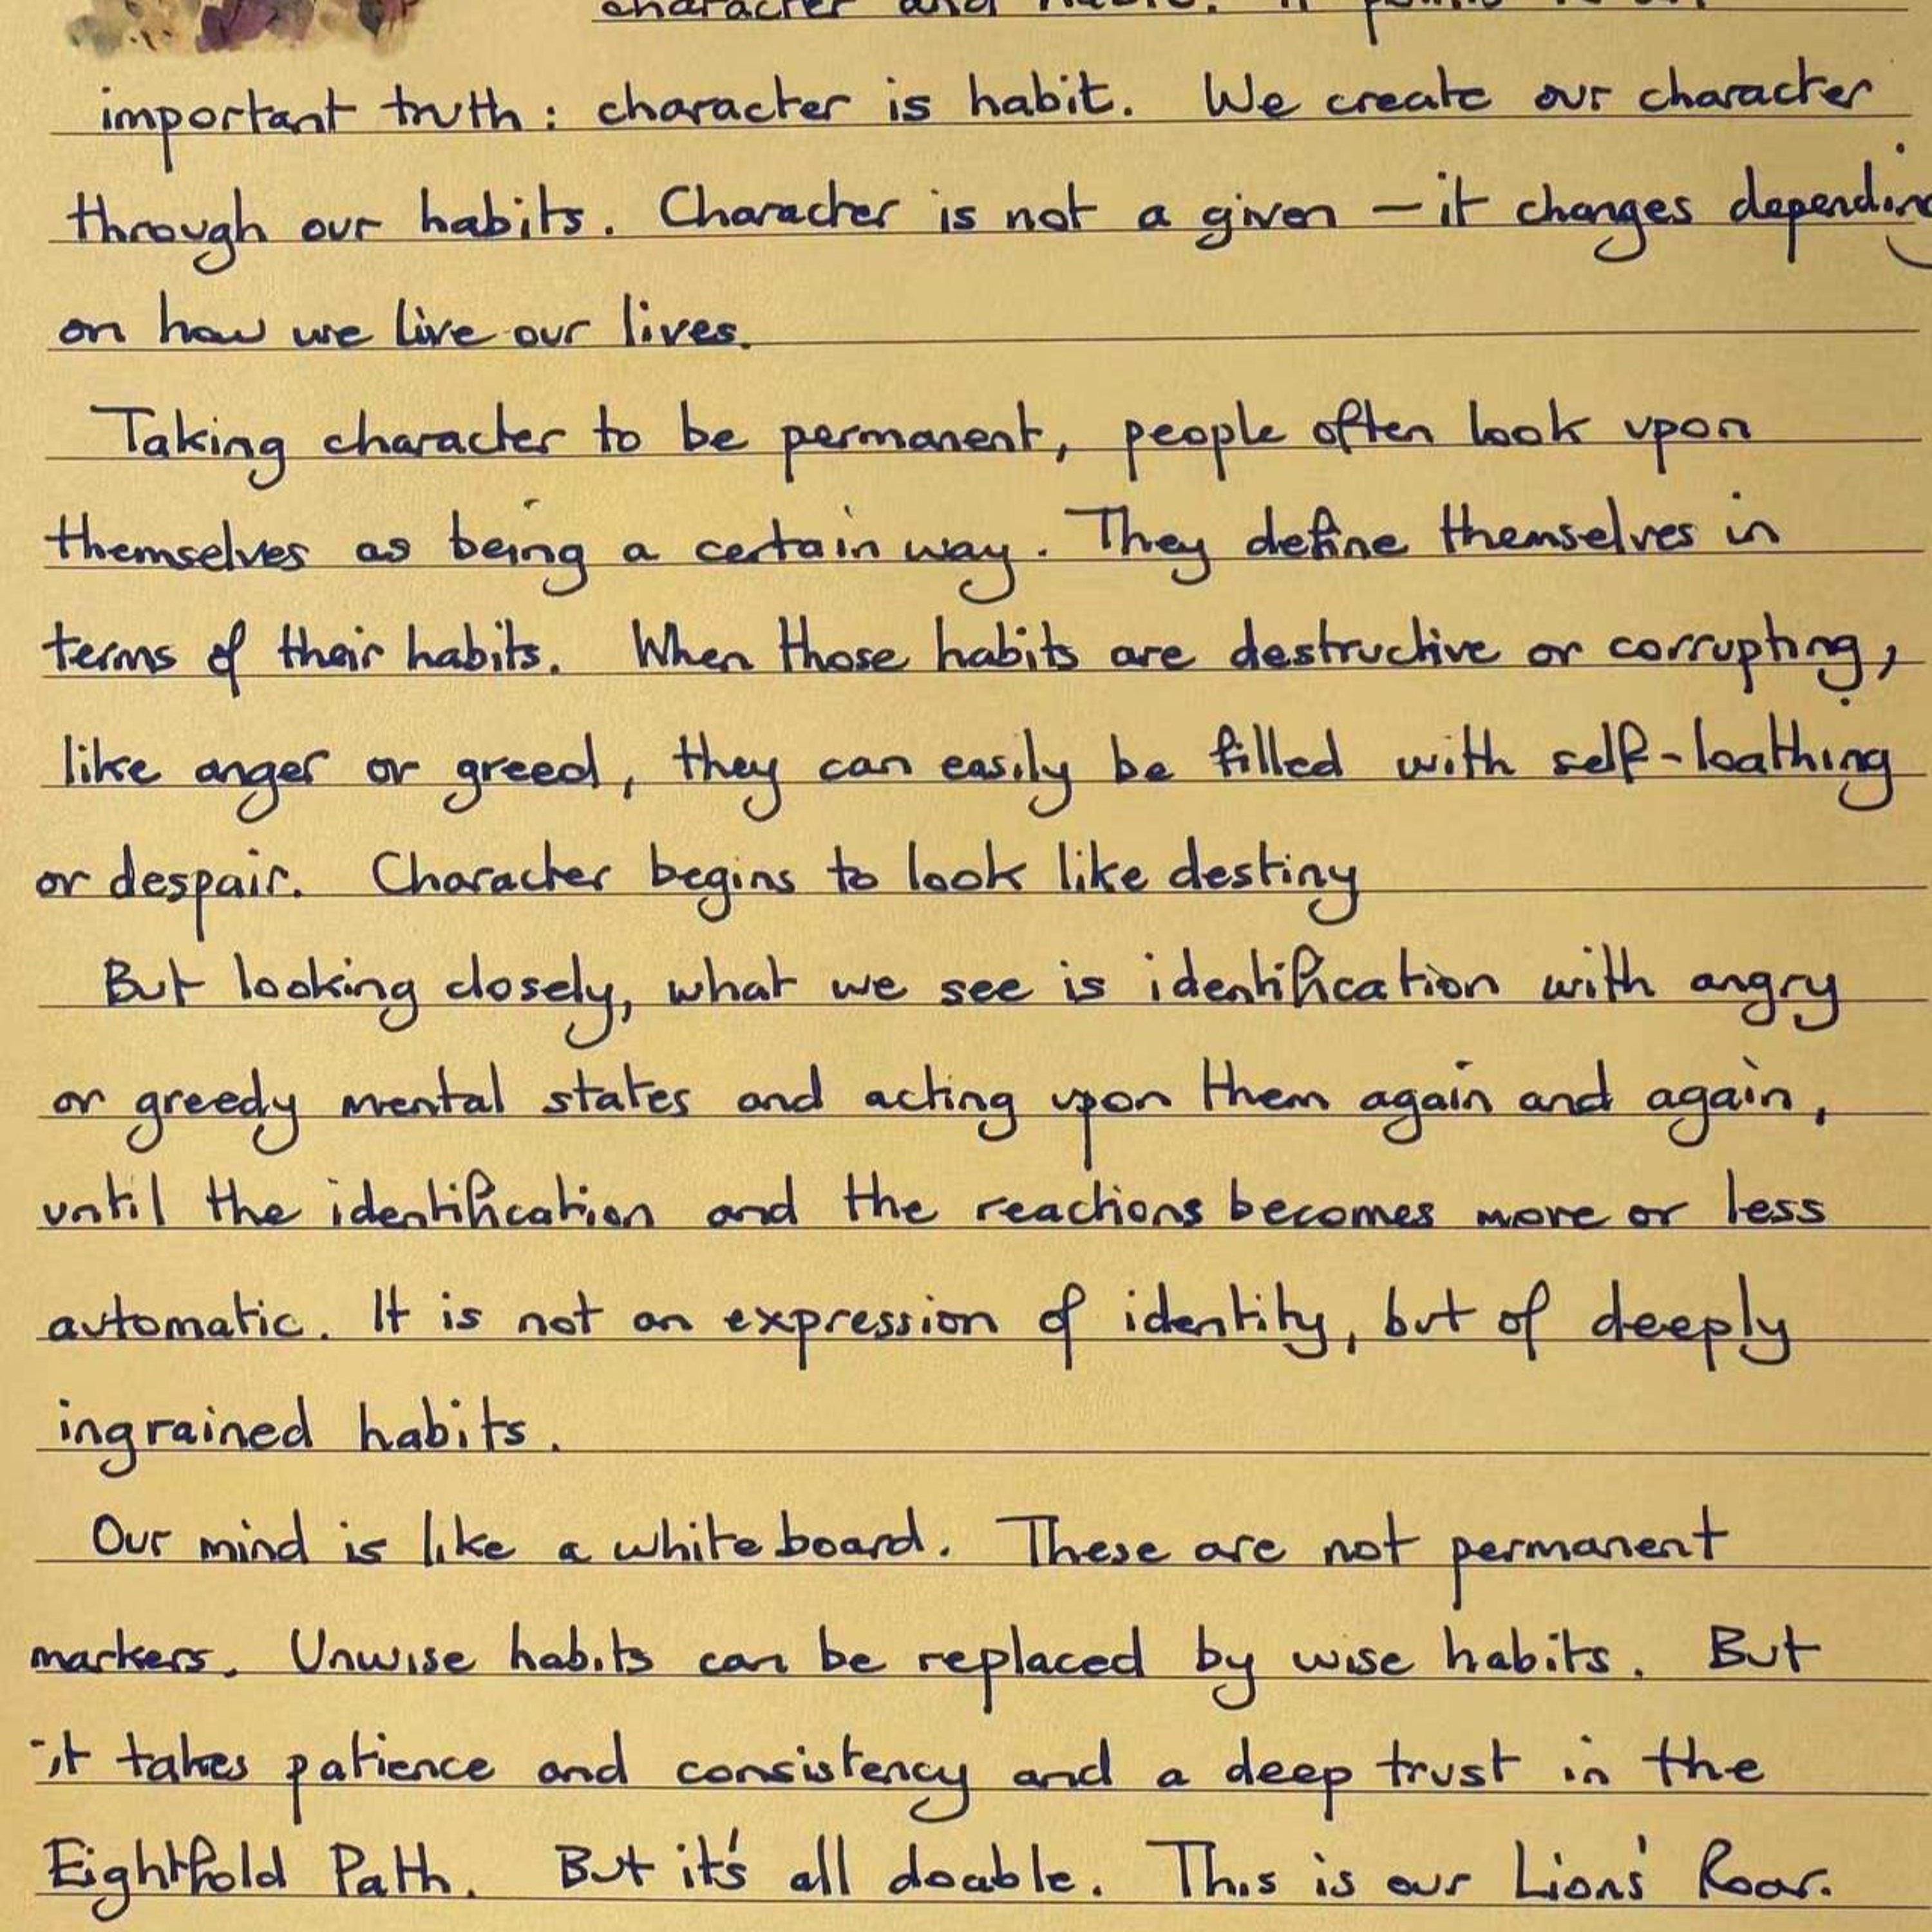 character and
important truth: character is habit. We create our character
through our habits. Character is not a given – it changes depending
on how we live our lives.
Taking character to be permanent, people often look upon
themselves as being a certain way. They define themselves in
terms of their habits. When those habits are destructive or corrupting,
like anger or greed, they can easily be filled with self-loathing
or despair. Character begins to look like destiny
But looking closely, what we see is identification with angry
or greedy mental states and acting upon them again and again,
until the identification and the reactions becomes more or less
automatic. It is not an expression of identity, but of deeply
ingrained habits.
Our mind is like a whiteboard. These are not permanent
markers. Unwise habits can be replaced by wise habits. But
it takes patience and consistency and a deep trust in the
Eightfold Path. But it's all doable. This is our Lions' Roar.